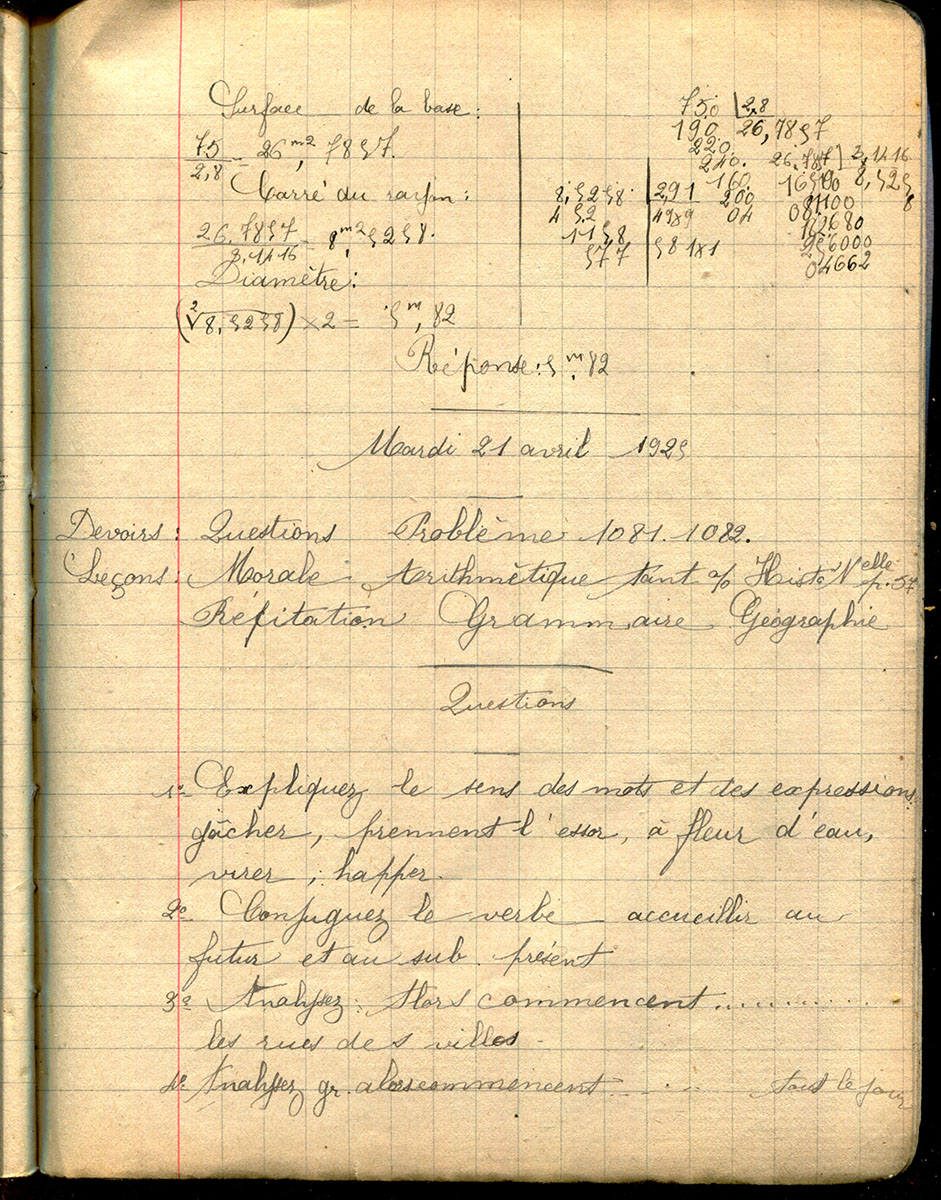 Surface de la base:
75/2,8 = 26 m2, 7857.
Carré du rayon:
26,7857/3,1416 = 8 m2, 5258.
Diamètre:
(2√8,5258) × 2 = 5 m, 82
Réponse: 5 m, 82
75,0 2,8
190 26,7857
220
240. 26.7857 3,1416
160 16590 8,5258
200 081100
04 162680
256000
04662
8,5258 2,91
4 52 49x9
1158
577 581x1
Mardi 21 avril 1925
Devoirs: Questions Problème 1081. 1082.
Leçons: Morale Arithmétique tant % Histre Nelle p. 57
Réfitation Grammaire Géographie
Questions
1o Expliquez le sens des mots et des expressions
gâcher, prennent l'essor, à fleur d'eau,
virer, happer.
2o Conjuguez le verbe accueillir au
futur et au sub. présent
3o Analysez: Alors commencent ............
les rues des villes.
4o Analysez gr. alors commencent ...... tout le jour